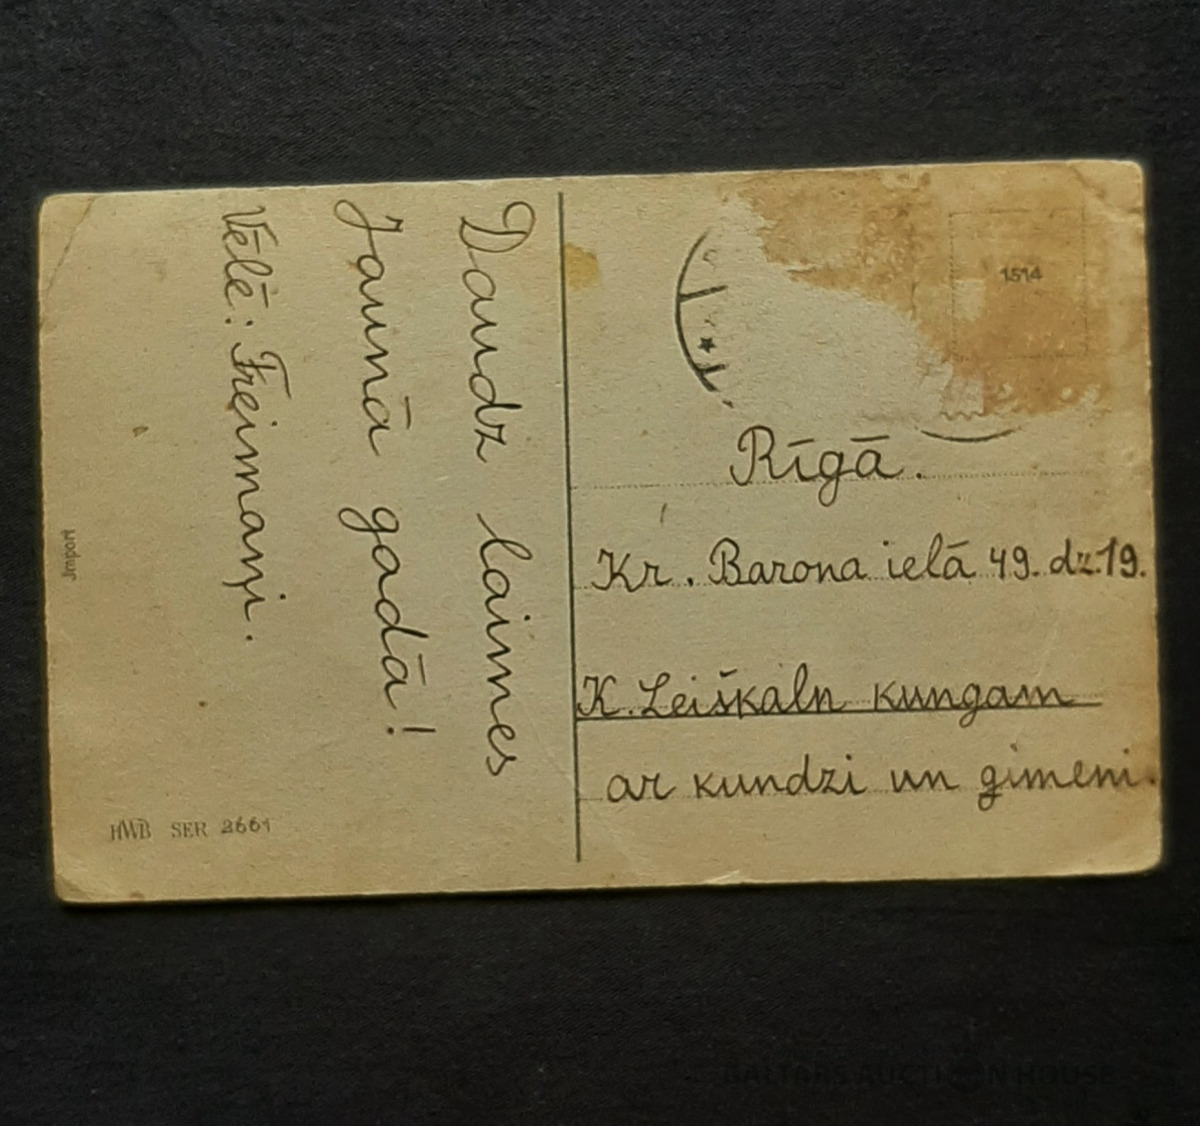 Daudz laimes
Jaunā gadā!
Vēlē: Freimaņi.
Jmport
HWB SER 2661
1514
Rīgā.
Kr. Barona ielā 49. dz. 19.
K. Leiškaln kungam
ar kundzi un ģimeni.
BALTARS AUCTION HOUSE